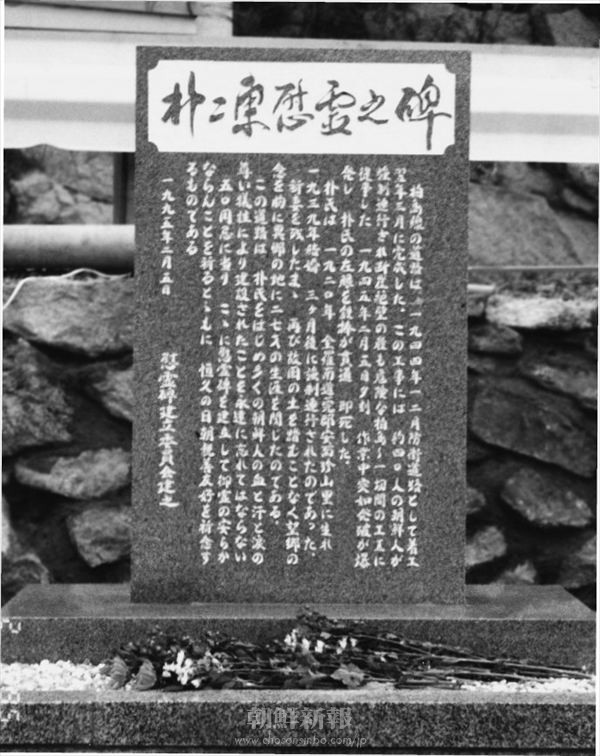 朴二東慰霊之碑
柏島堤の道路は、一九四四年一二月防衛道路として着工
翌年三月に完成した。この工事には 約四〇人の朝鮮人が
強制連行され断崖絶壁の最も危険な柏島〜一切間の工区に
従事した 一九四五年二月五日夕刻 作業中突如発破が爆
発し 朴氏の左腰を鉄棒が貫通 即死した。
朴氏は 一九二〇年、全羅南道莞郡安面珍山里に生れ
一九三九年結婚 三ヶ月後に強制連行されたのであった。
新妻を残したまゝ 再び故国の土を踏むことなく望郷の
念を胸に異郷の地に二七才の生涯を閉じたのである。
この道路は 朴氏をはじめ多くの朝鮮人の血と汗と涙の
尊い犠牲により建設されたことを永遠に忘れてはならない
五〇周忌に当り こゝに慰霊碑を建立して御霊の安らか
ならんことを祈るとゝもに 恒久の日朝親善友好を祈念す
るものである
一九九五年二月五日
慰霊碑建立委員会建之
朝鮮新報
www.chosonsinbo.com/jp